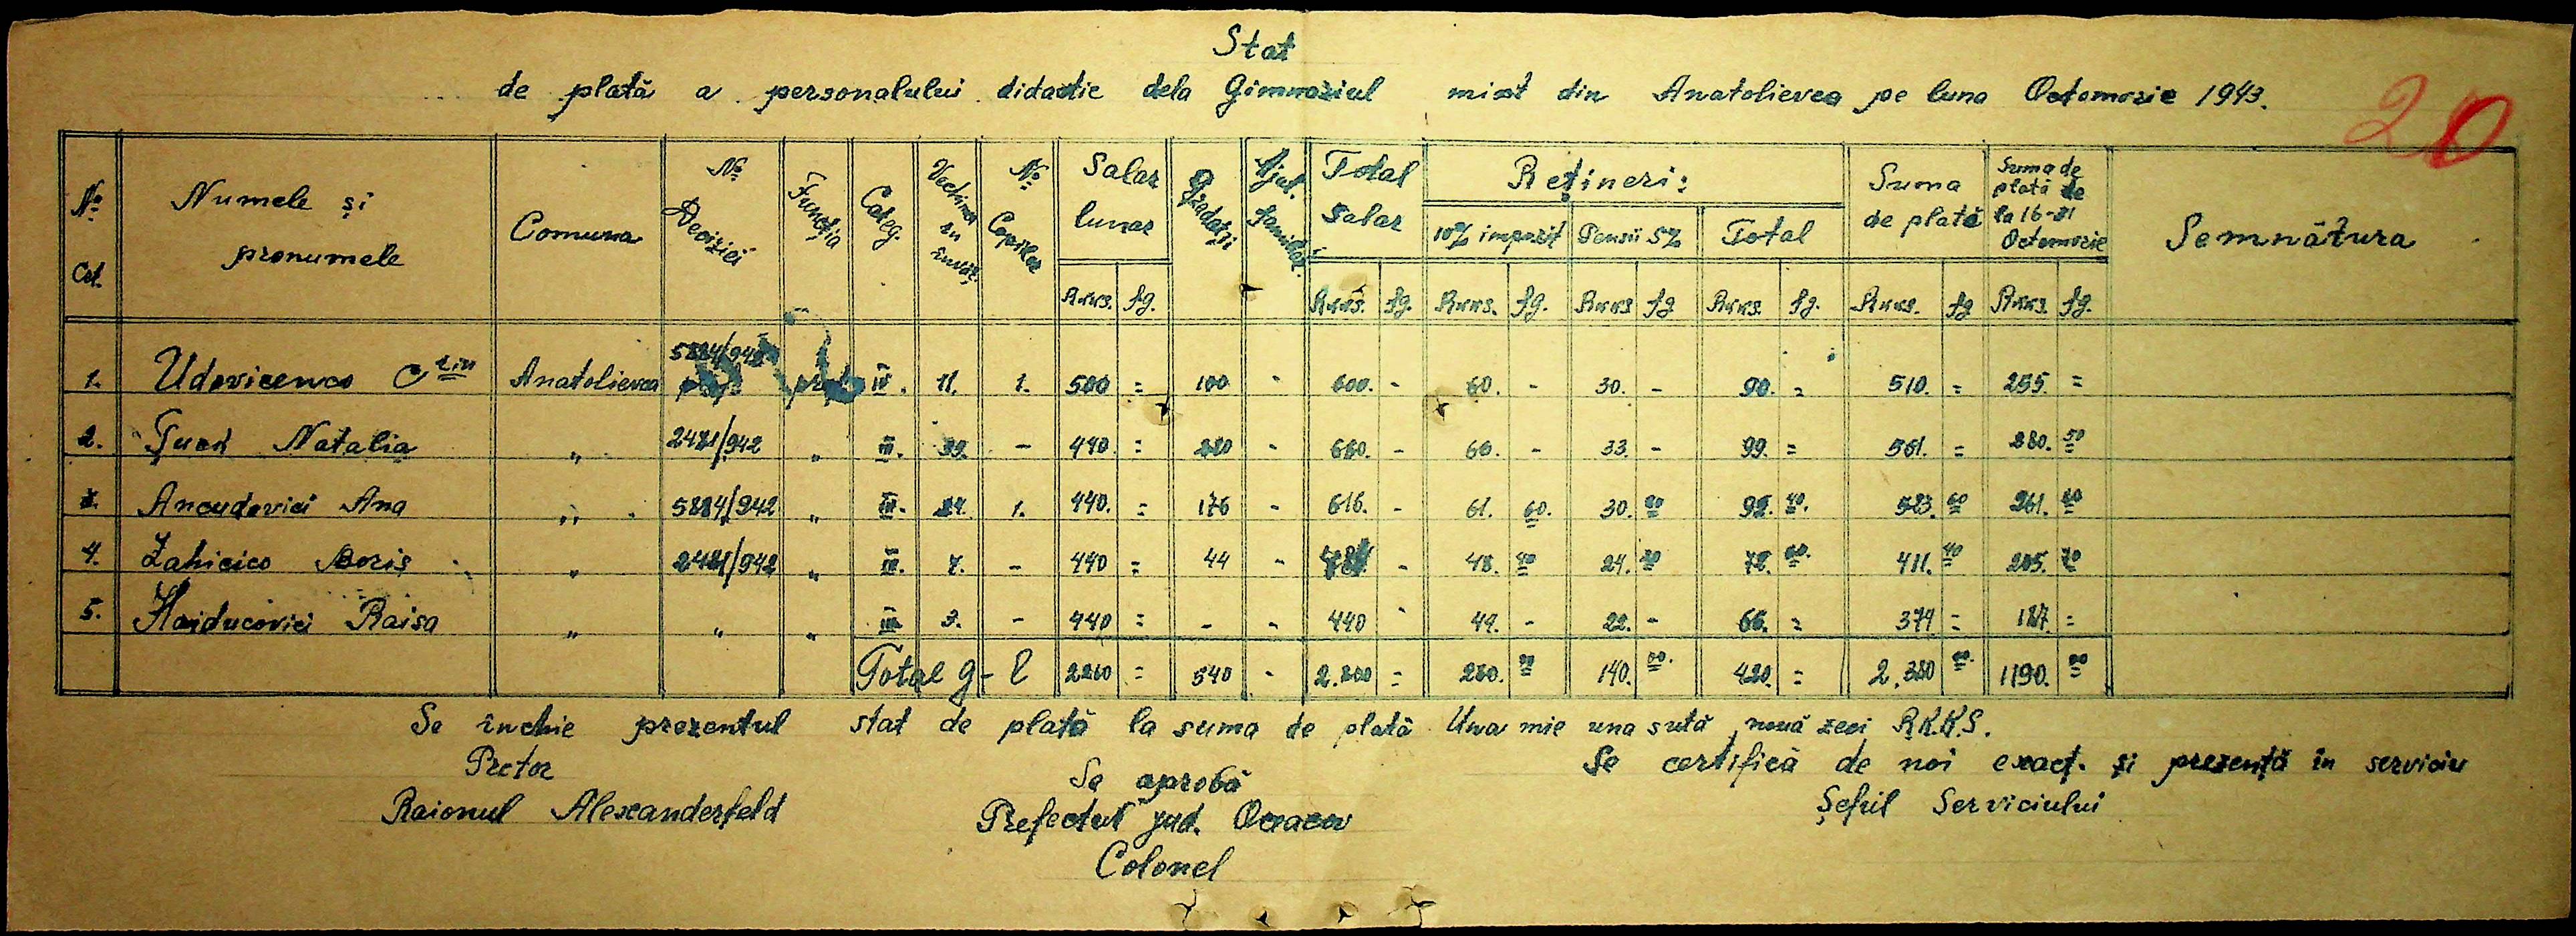 Stat
de plată a personalului didactic dela Gimnaziul mixt din Anatolievca pe luna Octomvrie 1943.
20
№ Crt. | Numele și pronumele | Comuna | № Deciziei | Funcția | Categ. | Vechimea în învăț. | № Copiilor | Salar lunar | Gradații | Ajut. familiar | Total Salar | Rețineri: | Suma de plată | Suma de plată de la 16-31 Octomvrie | Semnătura
10% impozit | Pensii 5% | Total
RKKS. | fg. | RKKS. | fg. | RKKS. | fg. | RKKS | fg | RKKS. | fg. | RKKS. | fg | RKKS. | fg.
1. | Udovicenco | Anatolievca | 5884/942 | IV. | 11. | 1. | 500 | = | 100 | - | 600. | - | 60. | - | 30. | - | 90. | = | 510. | = | 255. | =
2. | Natalia | " | 2421/942 | " | III. | 39. | - | 440. | = | 220 | - | 660. | - | 66. | - | 33. | - | 99. | = | 561. | = | 280. | 50
3. | Ancudovici Ana | " | 5884/942 | " | III. | 1. | 440. | = | 176 | - | 616. | - | 61. | 60. | 30. | 80 | 92. | 40. | 523. | 60 | 261. | 80
4. | Zahicico Boris | " | 2421/942 | " | III. | 7. | - | 440 | = | 44 | - | 484 | - | 48. | 40 | 24. | 20 | 72. | 60. | 411. | 40 | 205. | 70
5. | Haiducovici Raisa | " | " | " | III. | 3. | - | 440 | = | - | - | 440 | - | 44. | - | 22. | - | 66. | = | 374 | = | 187. | =
Total g-l | 2260 | = | 540 | - | 2.800 | = | 280. | 00 | 140. | 00. | 420. | = | 2.380 | 00. | 1190. | 00
Se închie prezentul stat de plată la suma de plată Una mie una sută nouă zeci R.K.K.S.
Se certifică de noi exact. și prezență în serviciu
Pretor
Se aprobă
Șeful Serviciului
Raionul Alexanderfeld
Prefectul jud. Oceacov
Colonel